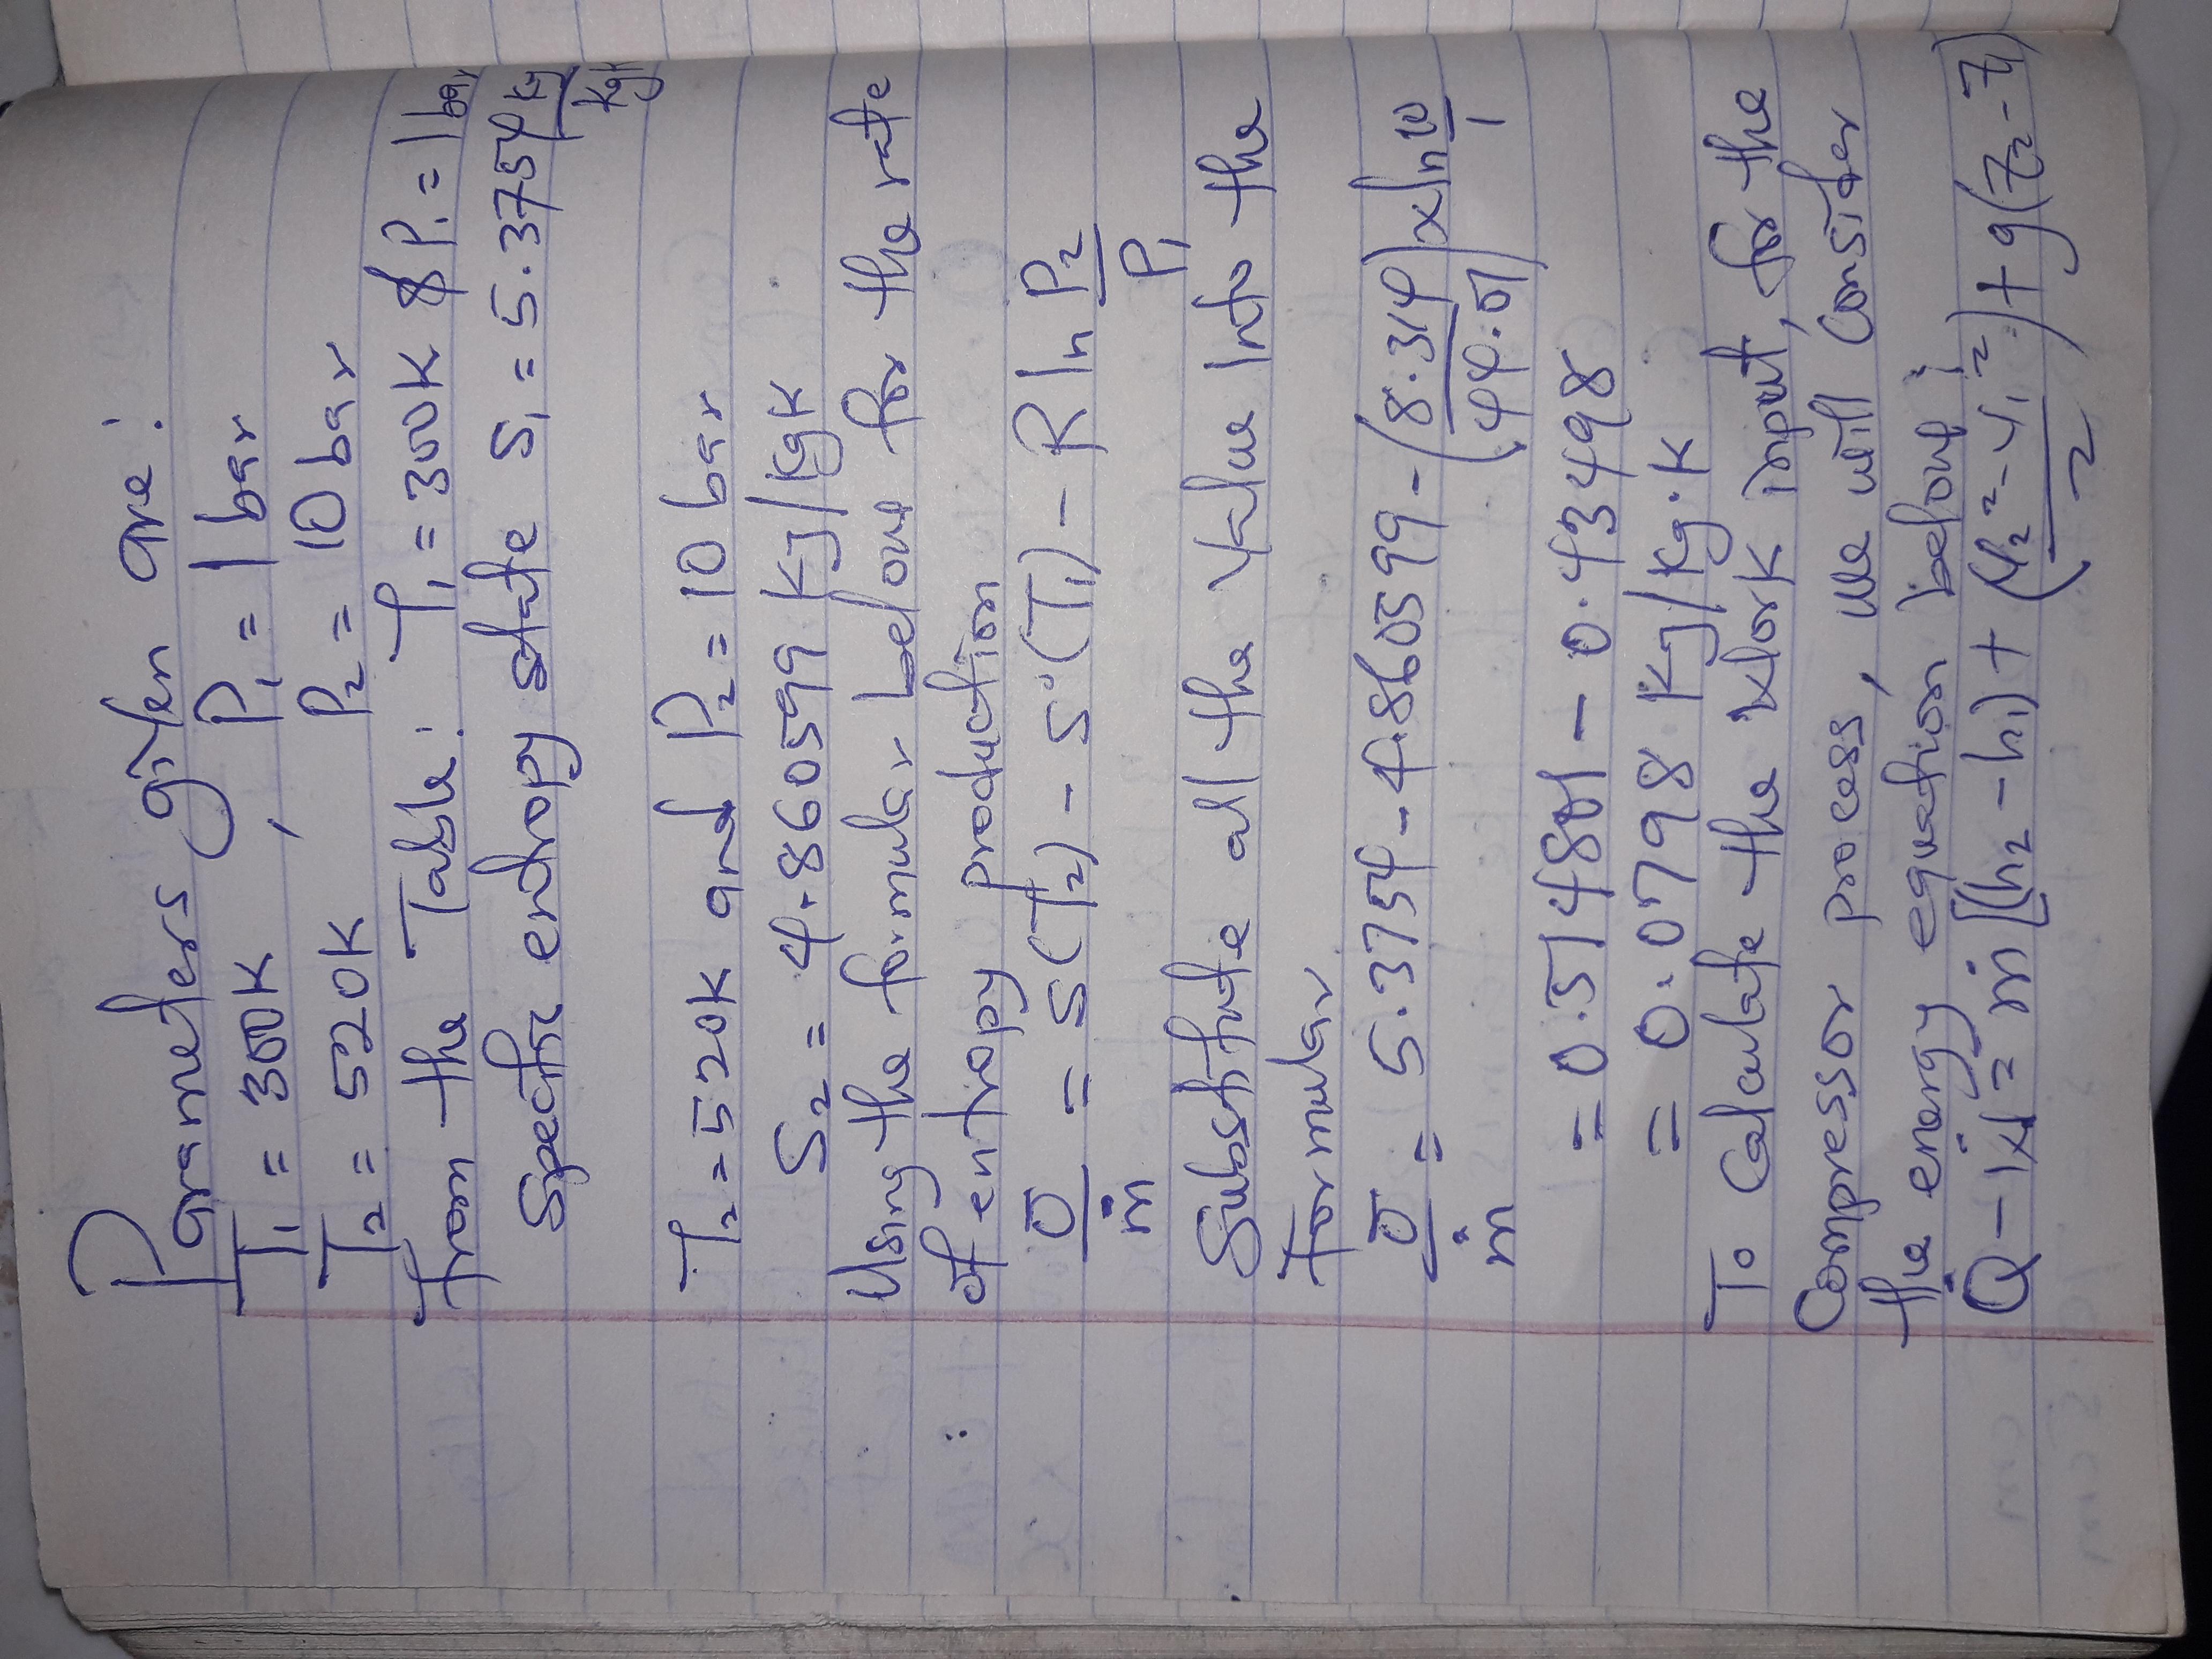 Parameters given are:
T₁ = 300K , P₁ = 1 bar
T₂ = 520K P₂ = 10 bar
from the Table: T₁ = 300K & P₁ = 1 bar
Specific entropy state S₁ = 5.3754 KJ/KgK
T₂ = 520K and P₂ = 10 bar
S₂ = 4.860599 KJ/KgK
Using the formular below for the rate
of entropy production
σ/ṁ = S(T₂) - S°(T₁) - R ln P₂/P₁
Substitute all the value into the
formular
σ/ṁ = 5.3754 - 4.860599 - (8.314/44.01) x ln 10/1
= 0.514801 - 0.43498
= 0.0798 KJ/Kg.K
To Calculate the Work input, for the
Compressor process, we will consider
the energy equation below;
Q - W = ṁ[(h₂ - h₁) + (V₂² - V₁²/2) + g(Z₂ - Z₁)